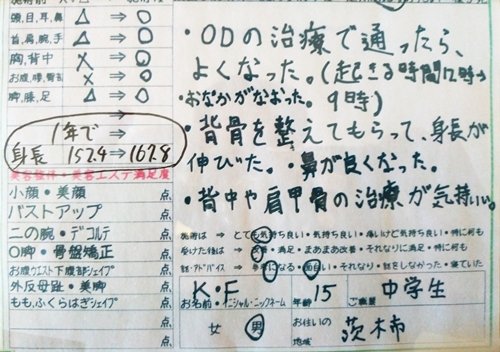 頭、目、耳、鼻 △ ⇒ ○
首、肩、腕、手 △ ⇒ ○
胸、背中 × ⇒ ○
お腹、腰、臀部 × ⇒ ○
脚、膝、足 △ ⇒ ○
⇒
1年で ⇒
身長 152.4 ⇒ 167.8
美容整体・美容エステ満足度
小顔・美顔 点、
バストアップ 点、
二の腕・デコルテ 点、
O脚・骨盤矯正 点、
お腹ウエスト下腹部シェイプ 点、
外反母趾・美脚 点、
もも、ふくらはぎシェイプ 点、
・ODの治療で通ったら、
よくなった。(起きる時間12時→
・おなかがなおった。 9時)
・背骨を整えてもらって、身長が
伸びた。・鼻が良くなった。
・背中や肩甲骨の治療が気持いい。
施術は → とても気持ち良い・気持ち良い・痛いけど気持ち良い・特に何も
受けた後は → 改善・満足・まあまあ改善・それなりに満足・特に何も
話・アドバイス → 参考になる・面白い・それなり・話をしなかった・寝ていた
K・F 15 中学生
お名前・イニシャル・ニックネーム 年齢 ご職業
女 男 お住いの地域 茨木市